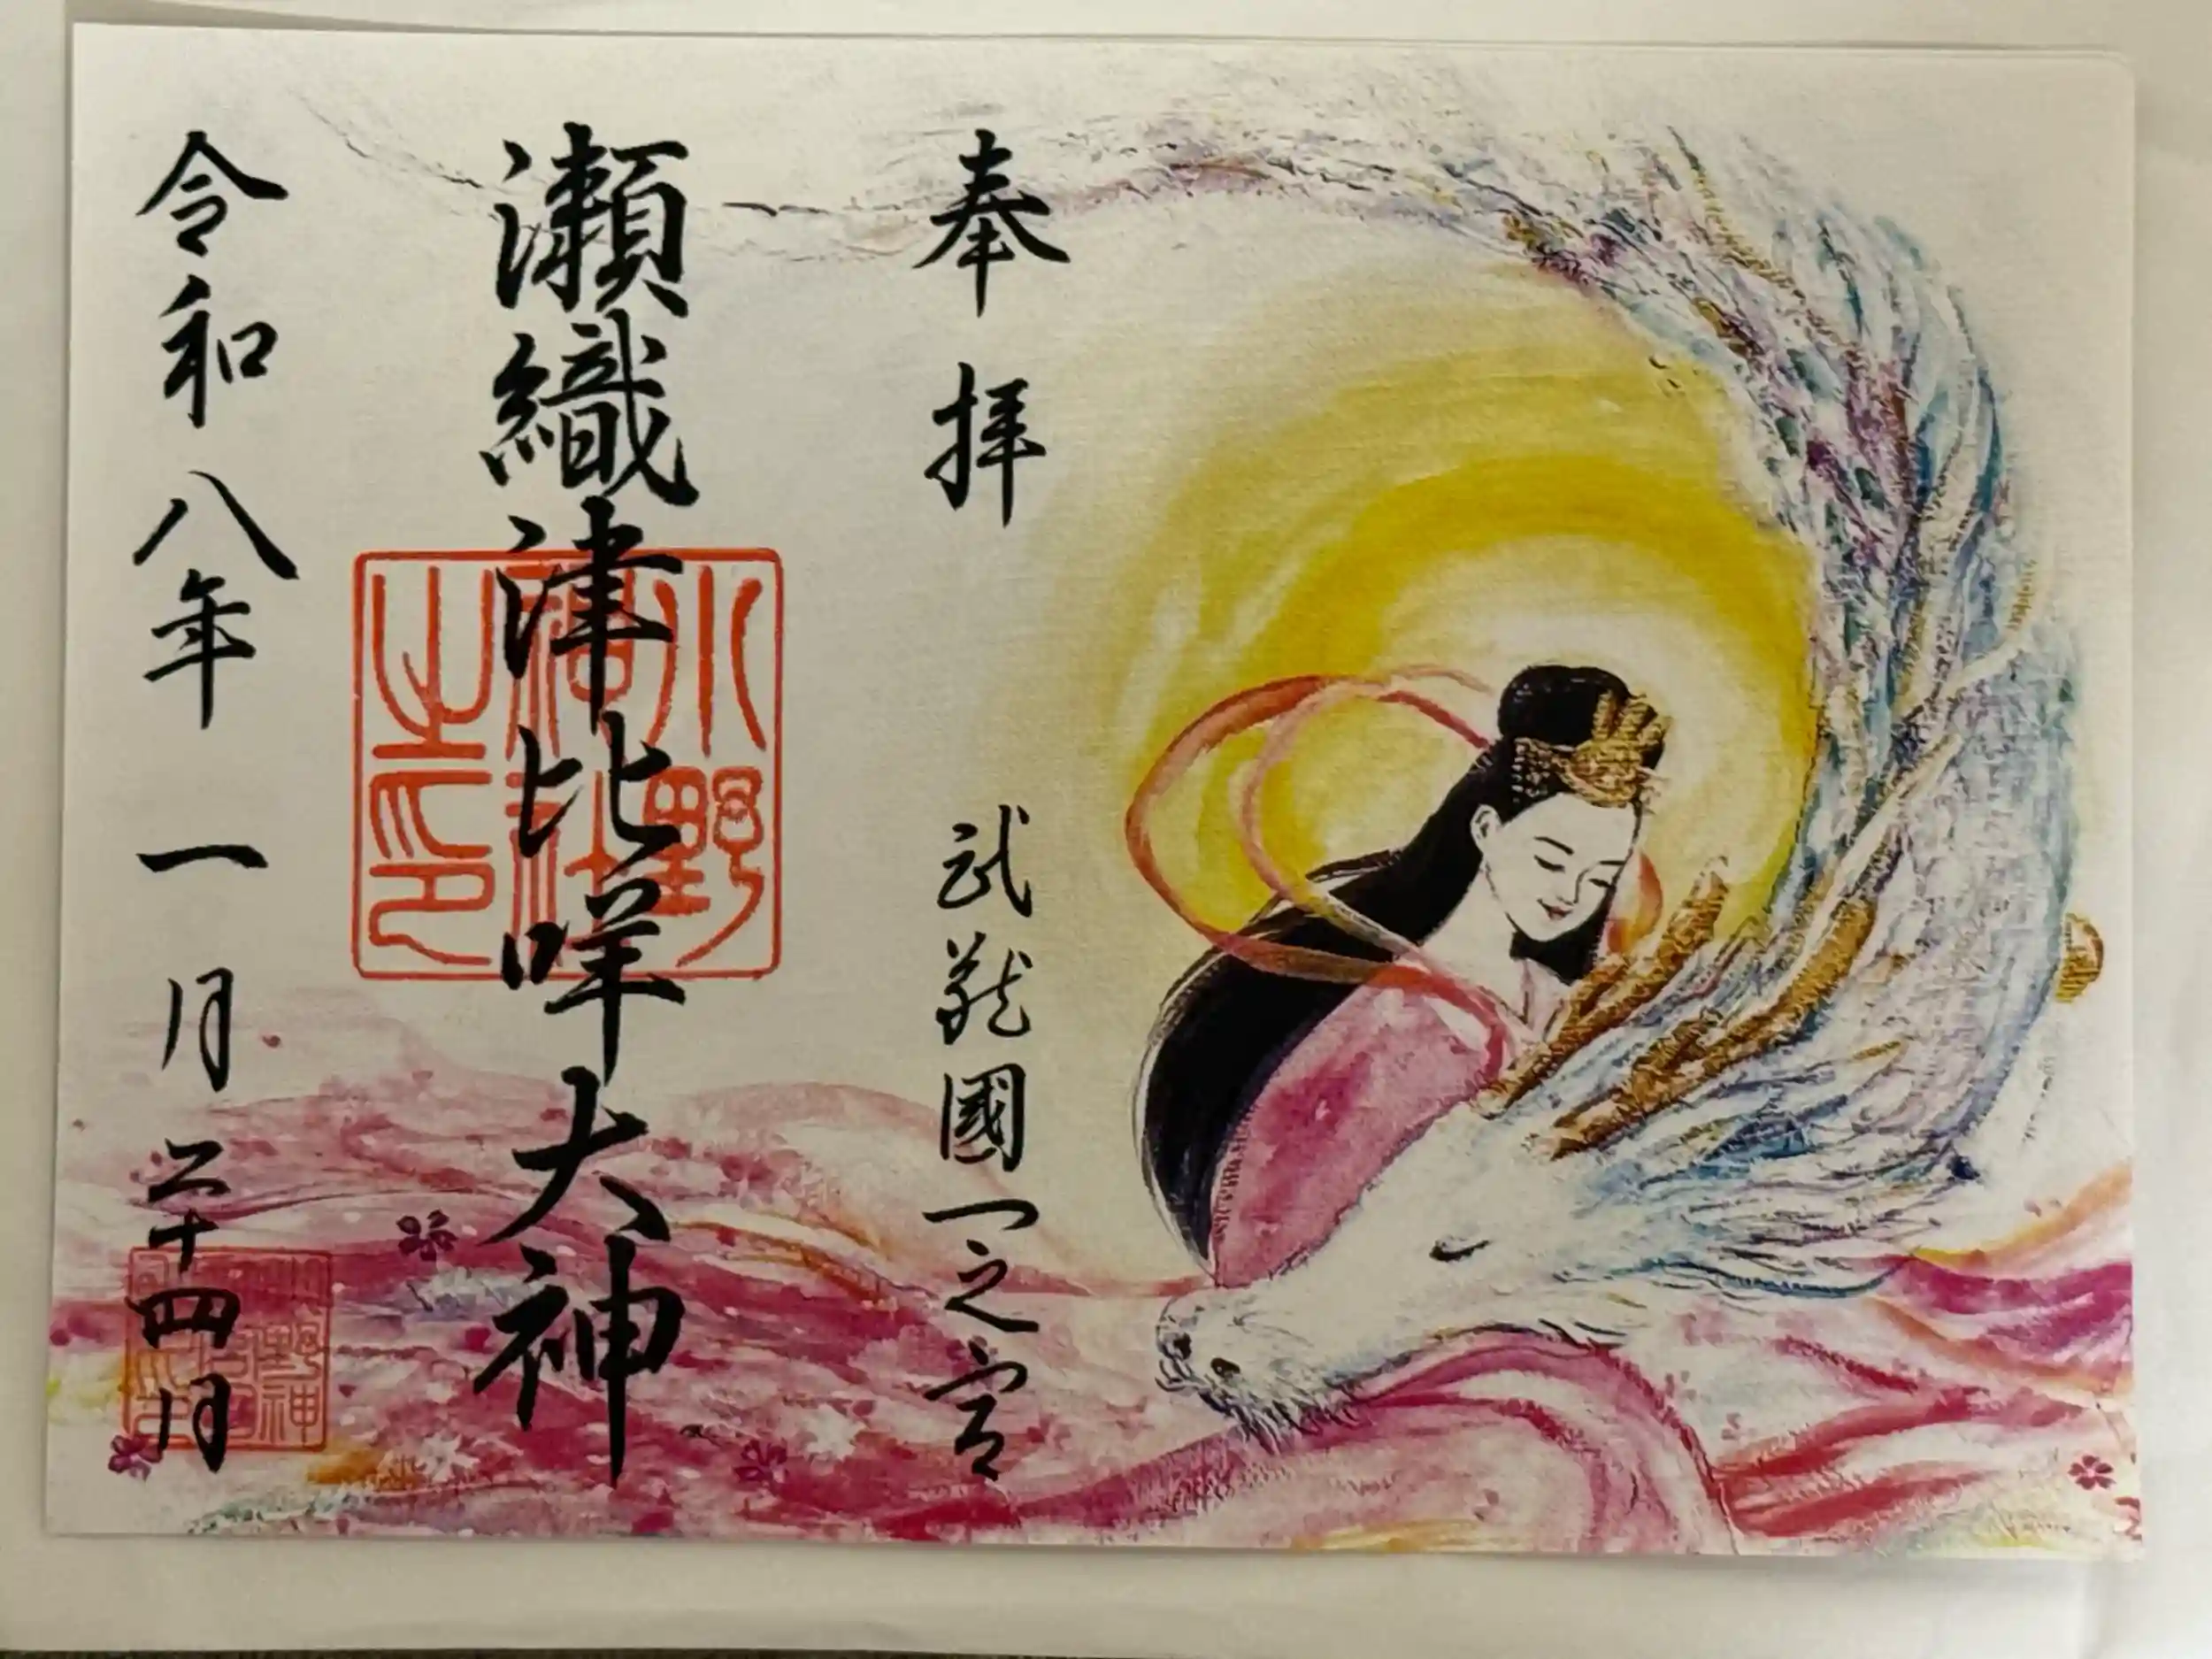 奉拝
武蔵國一之宮
瀬織津比咩大神
小野神社之印
令和八年 一月 二十四日